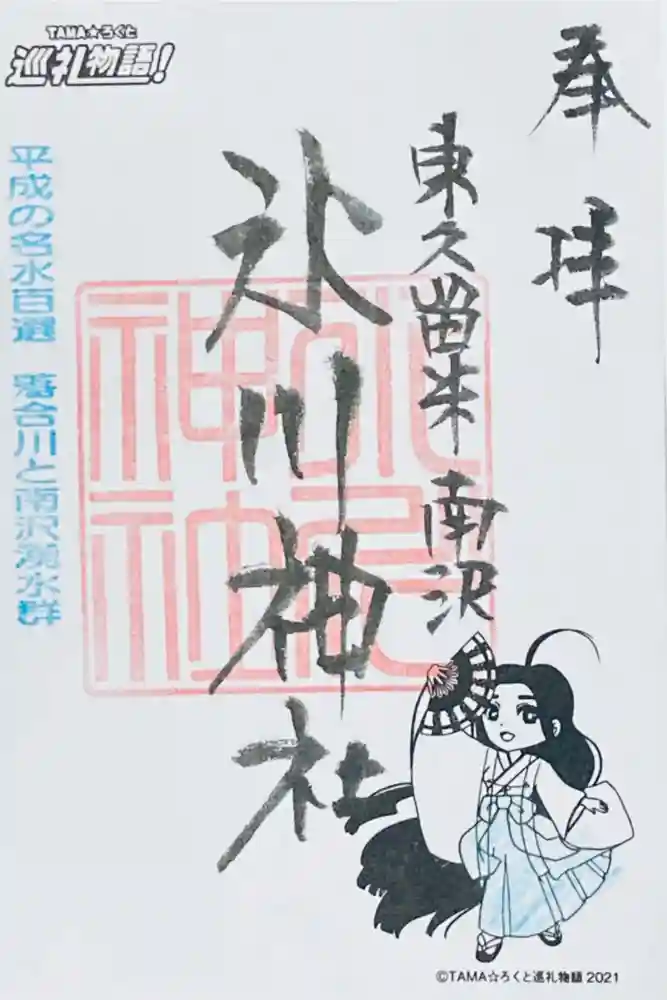 奉拝
東久留米 南沢
氷川神社
TAMA☆ろくと
巡礼物語!
平成の名水百選 落合川と南沢湧水群
©TAMA☆ろくと巡礼物語 2021